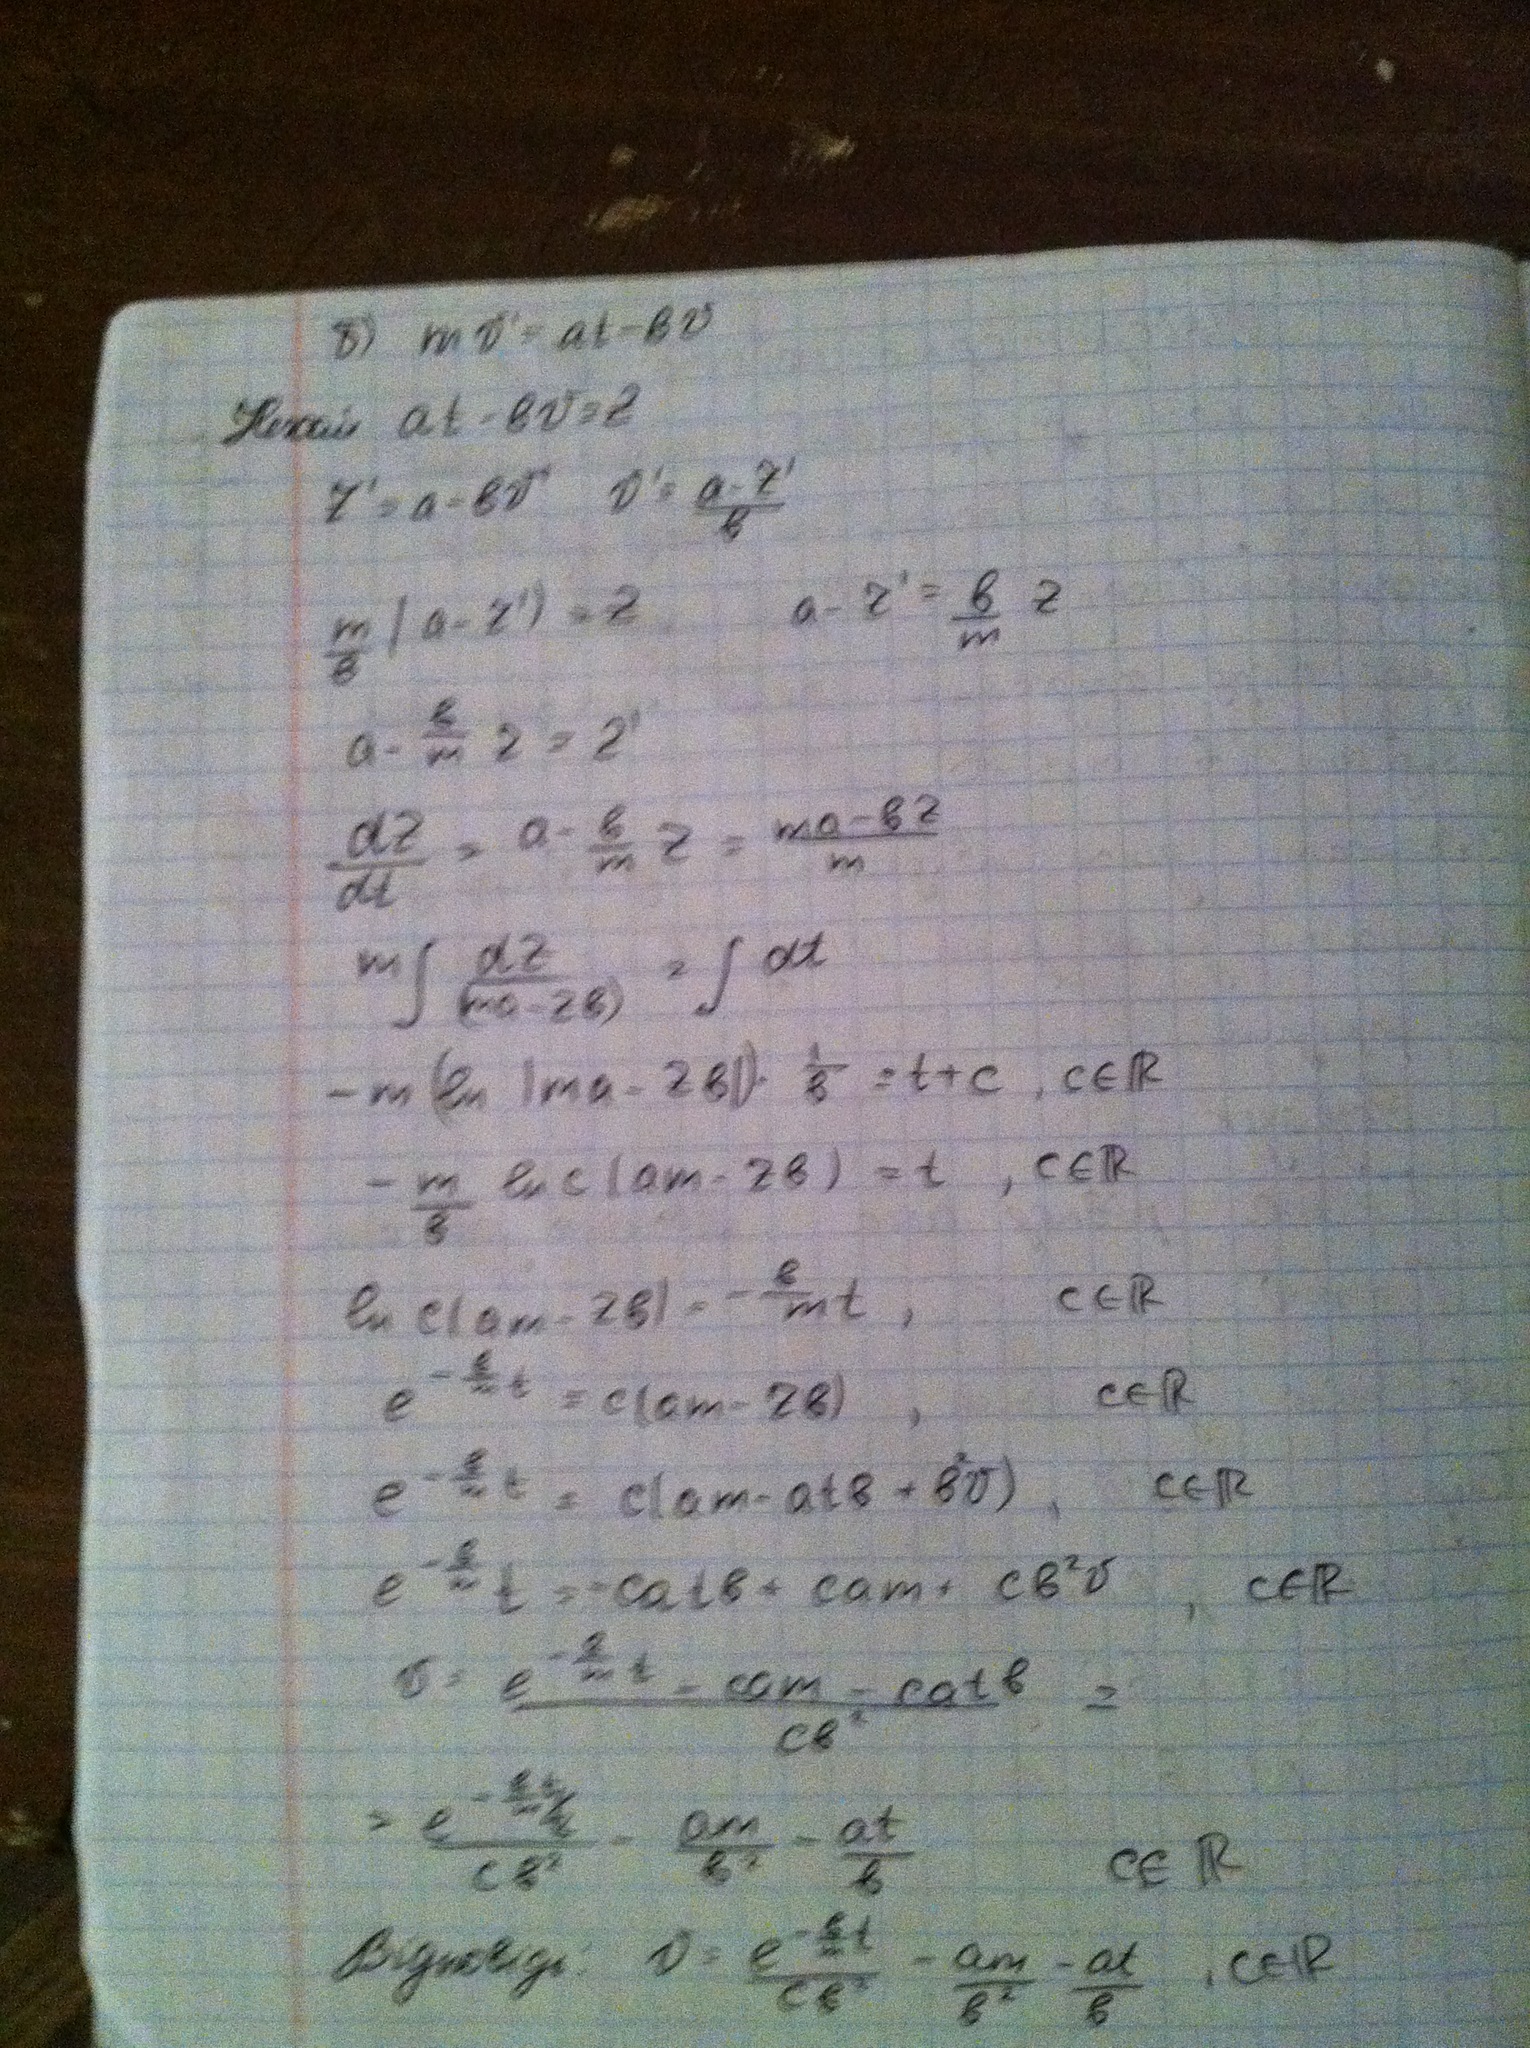 б) mv' = at - bv
Нехай at - bv = z
z' = a - bv' v' = \frac{a - z'}{b}
\frac{m}{b}(a - z') = z a - z' = \frac{b}{m} z
a - \frac{b}{m} z = z'
\frac{dz}{dt} = a - \frac{b}{m} z = \frac{ma - bz}{m}
m∫\frac{dz}{(ma - zb)} = ∫dt
-m(ln |ma - zb|)·\frac{1}{b} = t + c, c∈ℝ
-\frac{m}{b} ln c(am - zb) = t, c∈ℝ
ln c(am - zb) = -\frac{b}{m}t, c∈ℝ
e^{-\frac{b}{m}t} = c(am - zb), c∈ℝ
e^{-\frac{b}{m}t} = c(am - atb + b²v), c∈ℝ
e^{-\frac{b}{m}t} = -catb + cam + cb²v, c∈ℝ
v = \frac{e^{-\frac{b}{m}t} - cam - catb}{cb²} =
= \frac{e^{-\frac{bt}{m}}}{cb²} - \frac{am}{b²} - \frac{at}{b} c∈ℝ
Відповідь: v = \frac{e^{-\frac{b}{m}t}}{cb²} - \frac{am}{b²} - \frac{at}{b}, c∈ℝ